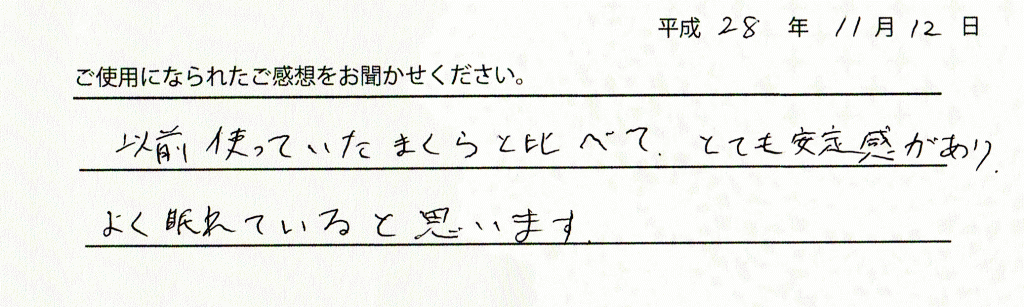 平成 28 年 11 月 12 日
ご使用になられたご感想をお聞かせください。
以前使っていたまくらと比べて、とても安定感があり、
よく眠れていると思います。